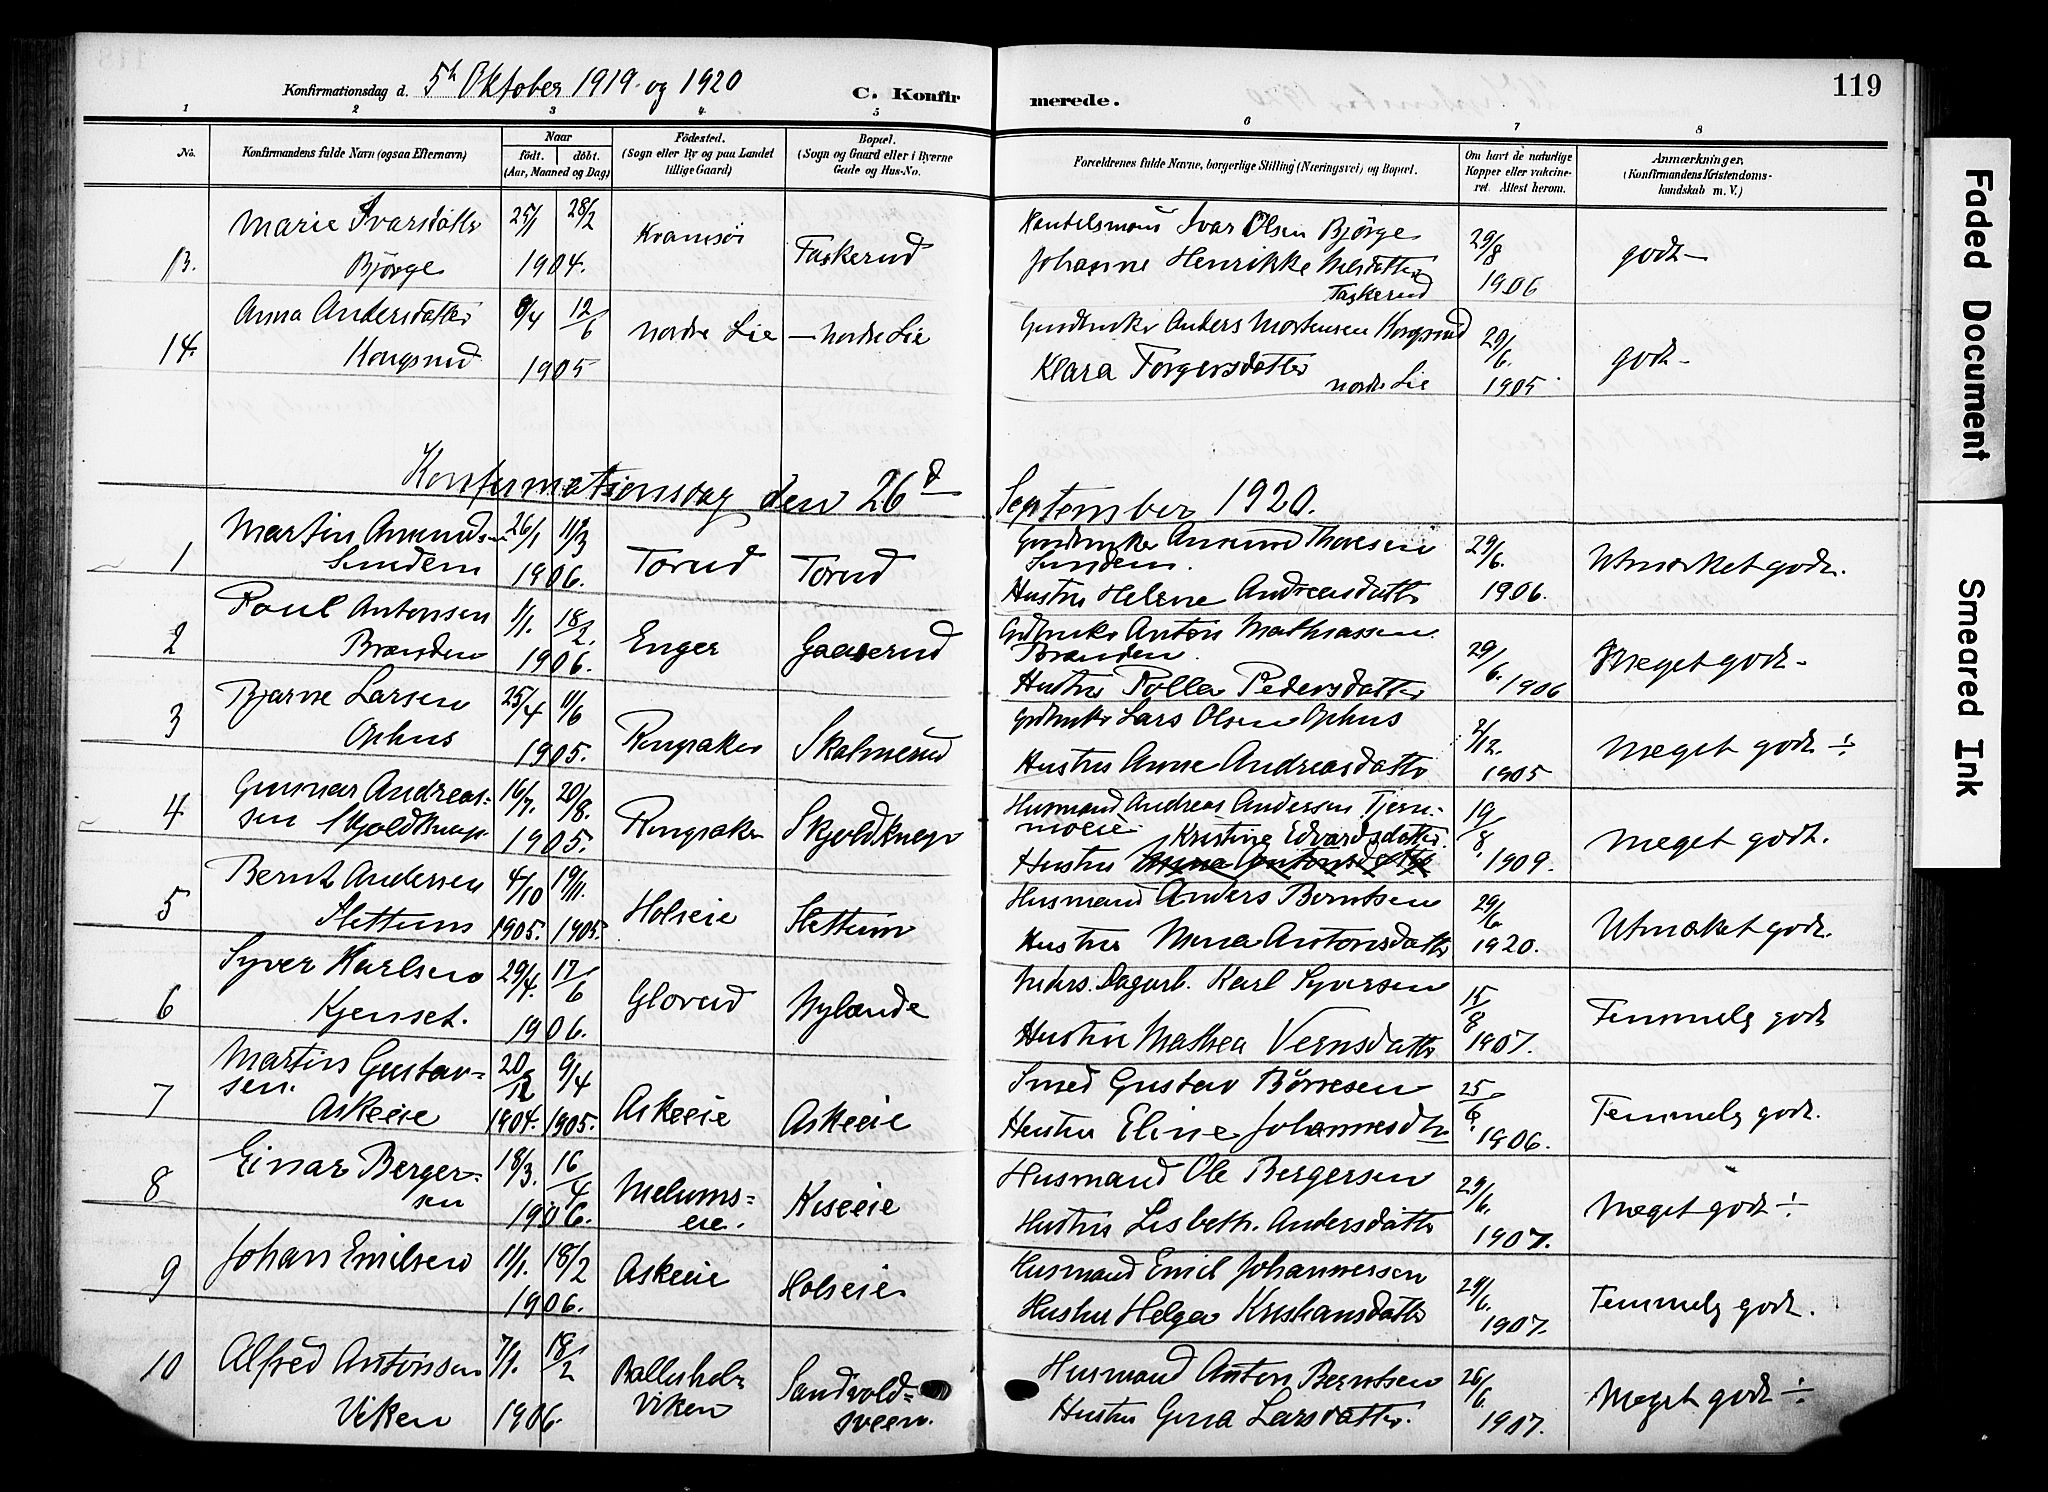 119
Konfirmationsdag d. 5h Oktober 1919 og 1920 C. Konfir merede.
1 2 3 4 5 6 7 8
No. Konfirmandens fulde Navn (ogsaa Efternavn) Naar født. døbt. (Aar, Maaned og Dag) Födested. (Sogn eller By og paa Landet tillige Gaard) Bopæl. (Sogn og Gaard eller i Byerne Gade og Hus-No. Forældrenes fulde Navne, borgerlige Stilling (Næringsvei) og Bopæl. Om havt de naturlige Kopper eller vakcineret. Attest herom. Anmærkninger. (Konfirmandens Kristendomskundskab m. V.)
13. Marie Ivarsdatter Bjørge 25/1 28/2 1904. Taskerud Ivar Olsen Bjørge
Johanne Henrikke Nilsdatter Taskerud 29/8 1906 godt –
14. Anna Andersdatter Kongsrud 8/4 12/6 1905 nordre Lie – nordre Lie Anders Mortensen Kongsrud
Klara Torgersdatter nordre Lie 29/6. 1905 godt –
Konfirmationsdag den 26d September 1920.
1 Martin Amunds. Sundem 26/1 11/3 1906. Torud Torud Gaardbruker Amund Thoresen Sundem.
Hustru Helene Andreasdatter 29/6. 1906. Utmærket godt.
2 Poul Antonsen Branden 1/1. 18/2. 1906. Enger Gaaserud Gdbruker Anton Mathiassen Branden.
Hustru Polla Pedersdatter 29/6. 1906 Meget godt –
3 Bjarne Larsen Ophus 25/4 11/6 1905. Ringsaker Skolmerud Gdbruker Lars Olsen Ophus
Hustru Anne Andreasdatter 2/12. 1905 Meget godt ÷
4 Gunnar Andreassen Skjoldknap 16/7. 20/8. 1905. Ringsaker Skjoldknap Husmand Andreas Andersen Tjernmoeie
Kristine Edvardsdatter.
Hustru Mina Antonsdatter 19/8. 1909. Meget godt.
5 Bernt Andersen Slettum 4/10 1905. 19/11. 1905. Holseie Slettum Husmand Anders Berntsen
Hustru Mina Antonsdatter 29/6. 1920. Utmærket godt.
6 Syver Karlsen Kjenset. 29/4. 17/6 1906. Glorud Nylænde Dagarb. Karl Syversen
Hustru Mathea Vernsdatter 15/8 1907. Temmelg godt
7 Martin Gustavsen. Askeeie 20/12 1904. 9/4 1905. Askeeie Askeeie Smed Gustav Børresen
Hustru Eline Johannesdtr 25/6. 1906. Temmelg godt.
8 Einar Bergersen 18/3. 16/4 1906. Melumseie. Kiseeie Husmand Ole Bergersen
Hustru Lisbeth. Andersdatter 29/6. 1907. Meget godt ÷
9 Johan Emilsen 11/1. 18/2 1906. Askeeie Holseie Husmand Emil Johannessen
Hustru Helga Kristiansdatter 29/6. 1907. Temmelg godt.
10 Alfred Antonsen Viken 7/1. 18/2 1906. Viken Sandvoldsveen. Husmand Anton Berntsen
Hustru Gina Larsdatter. 26/6. 1907. Meget godt ÷
Faded Document
Smeared Ink